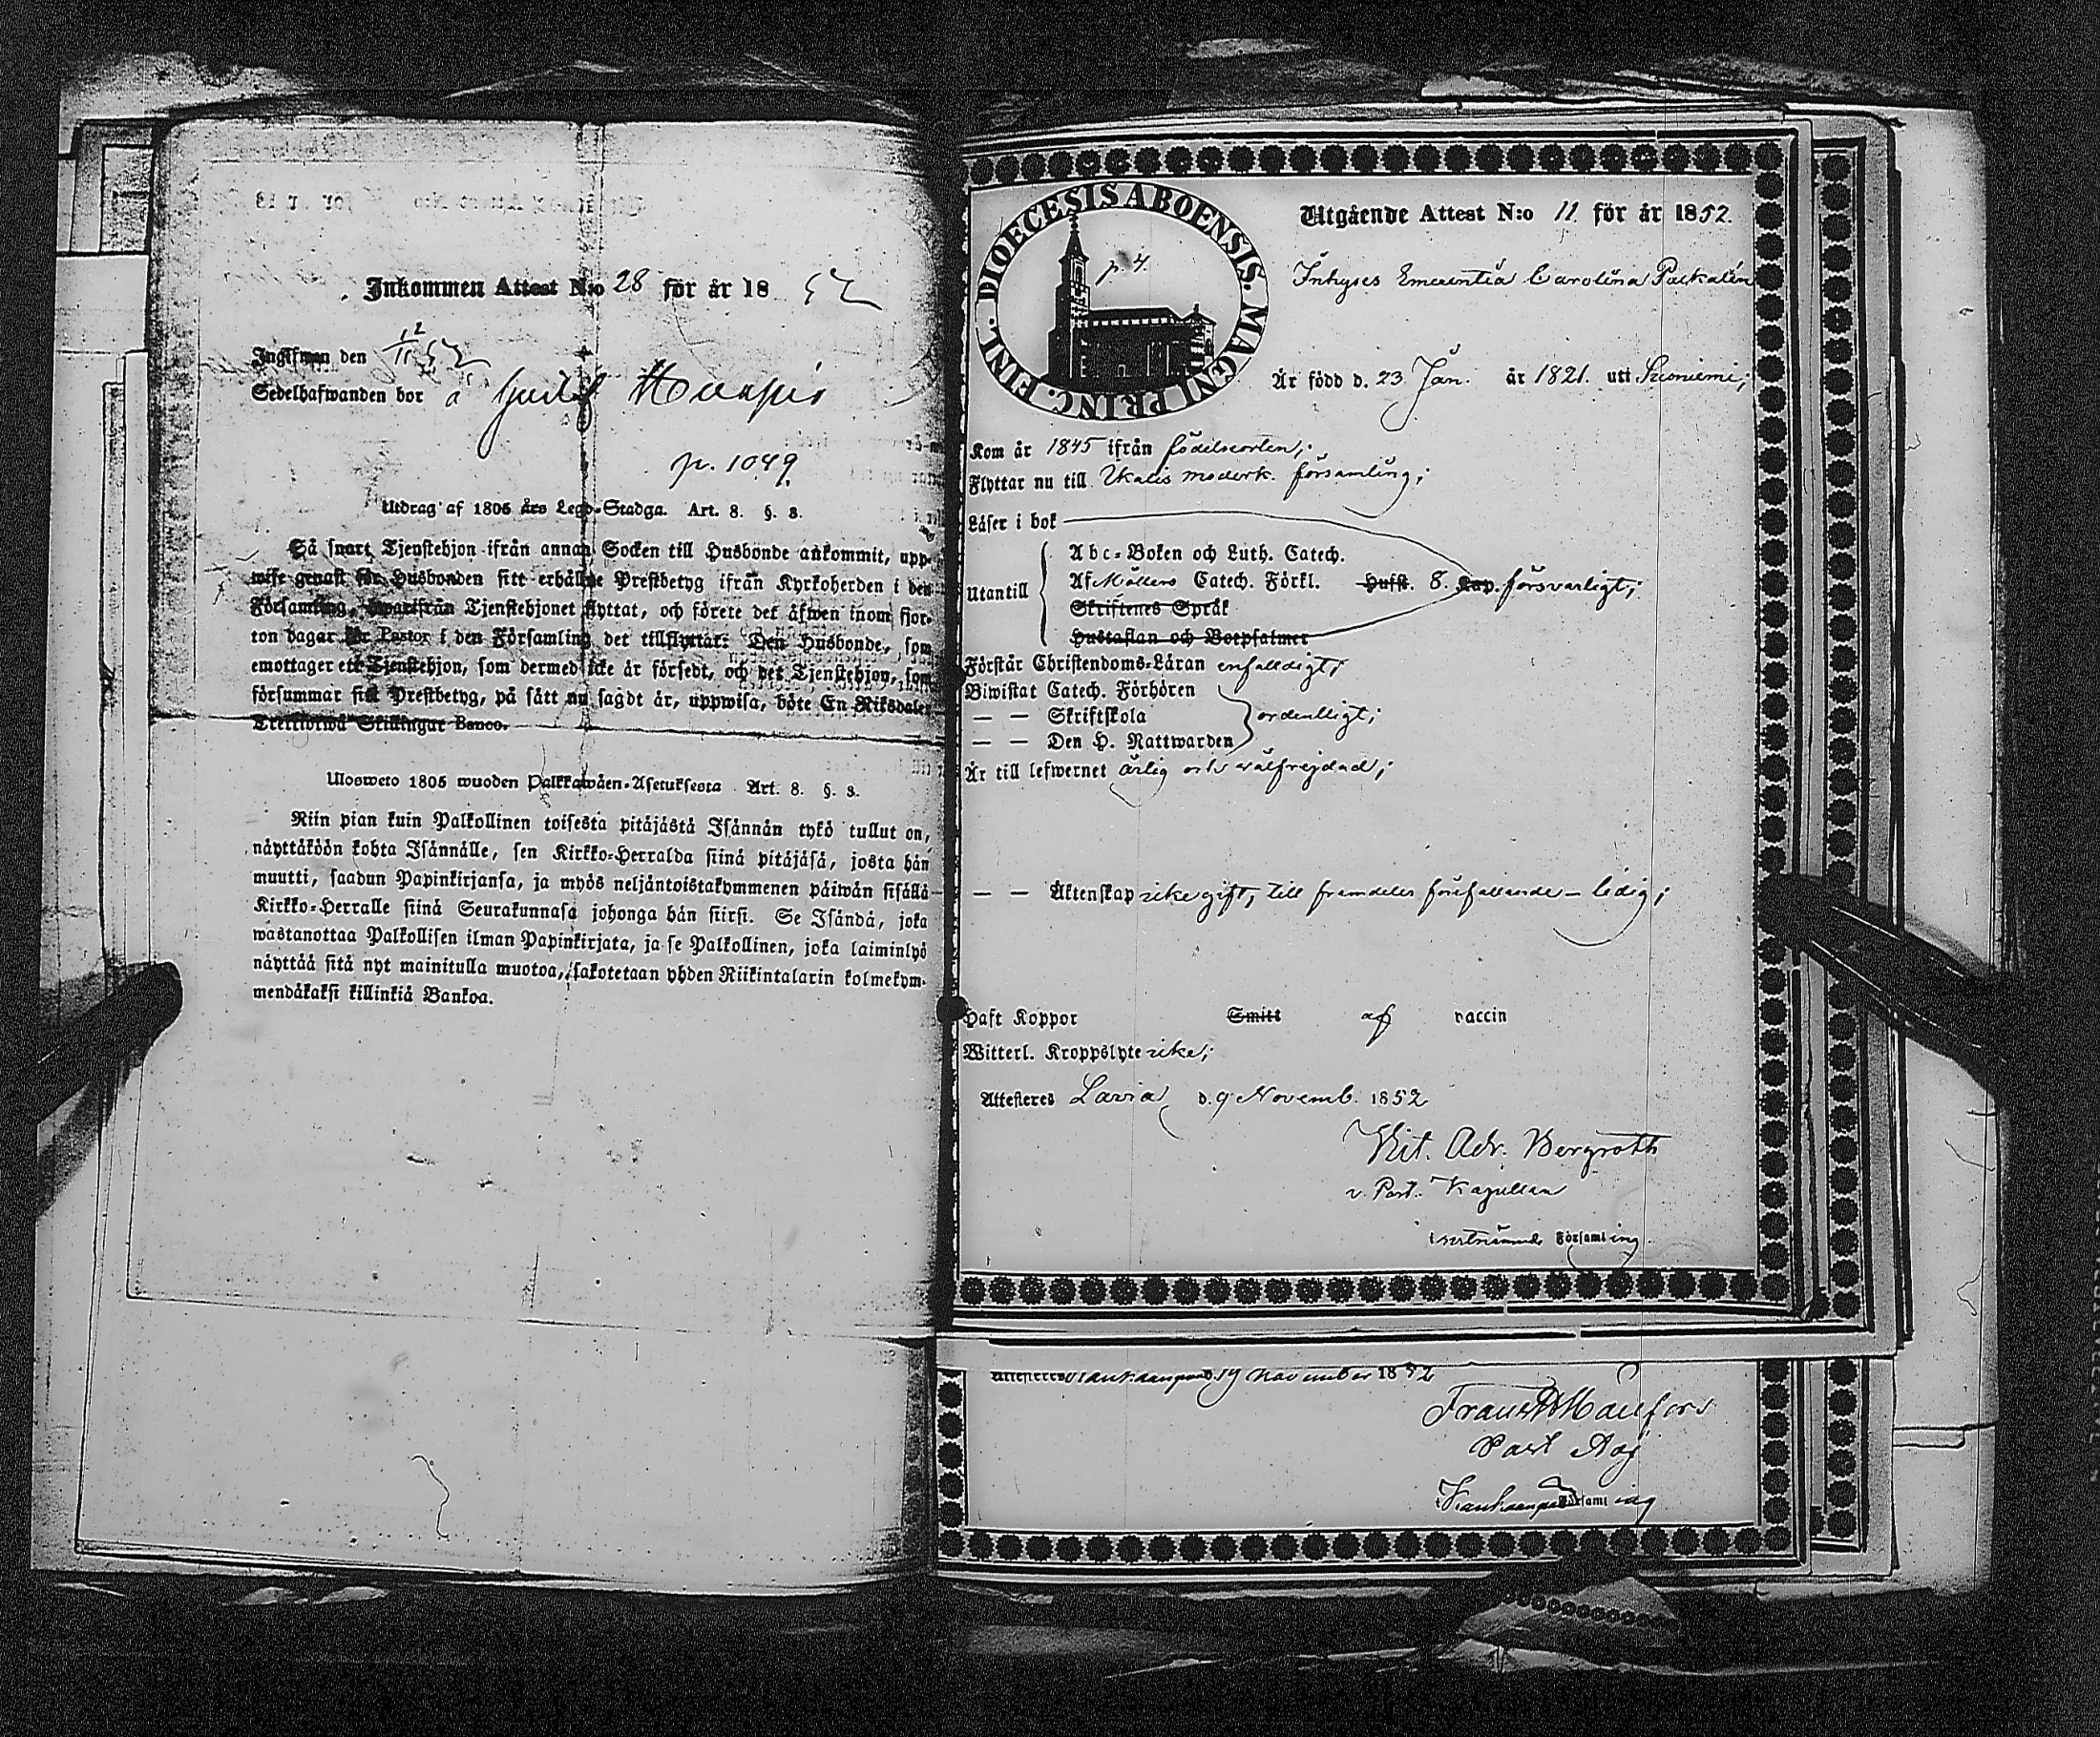 Inkommen Attest N:o 28 för år 18 52
Ingifwen den 12/11 52
Sedelhafwanden bor å
p. 1049.
Utdrag af 1805 års Lego-Stadga. Art. 8. §. 3.
Så snart Tjenstehjon ifrån annan Socken till Husbonde ankommit, upp-
wise genast för Husbonden sitt erhållne Prestbetyg ifrån Kyrkoherden i den
Församling, hwarifrån Tjenstehjonet flyttat, och förete det äfwen inom fjor-
ton dagar för Pastor i den Församling det tillflyttat: Den Husbonde, som
emottager ett Tjenstehjon, som dermed icke är försedt, och det Tjenstehjon, som
försummar sitt Prestbetyg, på sätt nu sagdt är, uppwisa, böte En Riksdaler
Trettiotwå Skillingar Banco.
Ulosweto 1805 wuoden Palkkawäen-Asetuksesta Art. 8. §. 3.
Niin pian kuin Palkollinen toisesta pitäjästä Isännän tykö tullut on,
näyttäköön kohta Isännälle, sen Kirkko-Herralda siinä pitäjäsä, josta hän
muutti, saadun Papinkirjansa, ja myös neljäntoistakymmenen päiwän sisällä
Kirkko-Herralle siinä Seurakunnasa johonga hän siirsi. Se Isändä, joka
wastanottaa Palkollisen ilman Papinkirjata, ja se Palkollinen, joka laiminlyö
näyttää sitä nyt mainitulla muotoa, sakotetaan yhden Riikintalarin kolmekym-
mendäkaksi killinkiä Bankoa.
DIOECESIS ABOENSIS. MAGNI PRINC. FINL.
p. 4.
Utgående Attest N:o 11 för år 1852.
Inhyses Emerentia Carolina
Är född d. 23 Jan. år 1821. uti Suoniemi;
Kom år 1845 ifrån födelseorten;
Flyttar nu till Ikalis moderk. församling;
Läser i bok
Utantill
Abc-Boken och Luth. Catech.
Af Möllers Catech. Förkl. Hufst. 8. Kap. försvarligt;
Skriftenes Språk
Hustaflan och Botpsalmer
Förstår Christendoms-Läran enfaldigt;
Biwistat Catech. Förhören
— — Skriftskola ordentligt;
— — Den H. Nattwarden
Är till lefwernet ärlig och välfrejdad;
— — Äktenskap icke gift, till framdeles förefallande - ledig;
Haft Koppor Smitt af vaccin
Witterl. Kroppslyte icke;
Attesteres Lavia d. 9 Novemb. 1852
Vit. Adr. Bergroth
v. Past. Kapellan
i ofvannämnde Församling.
Attesteres Kankaanpää d. 19 November 1852
Frans Maufors
Past Adj
i Kankaanpää Församling